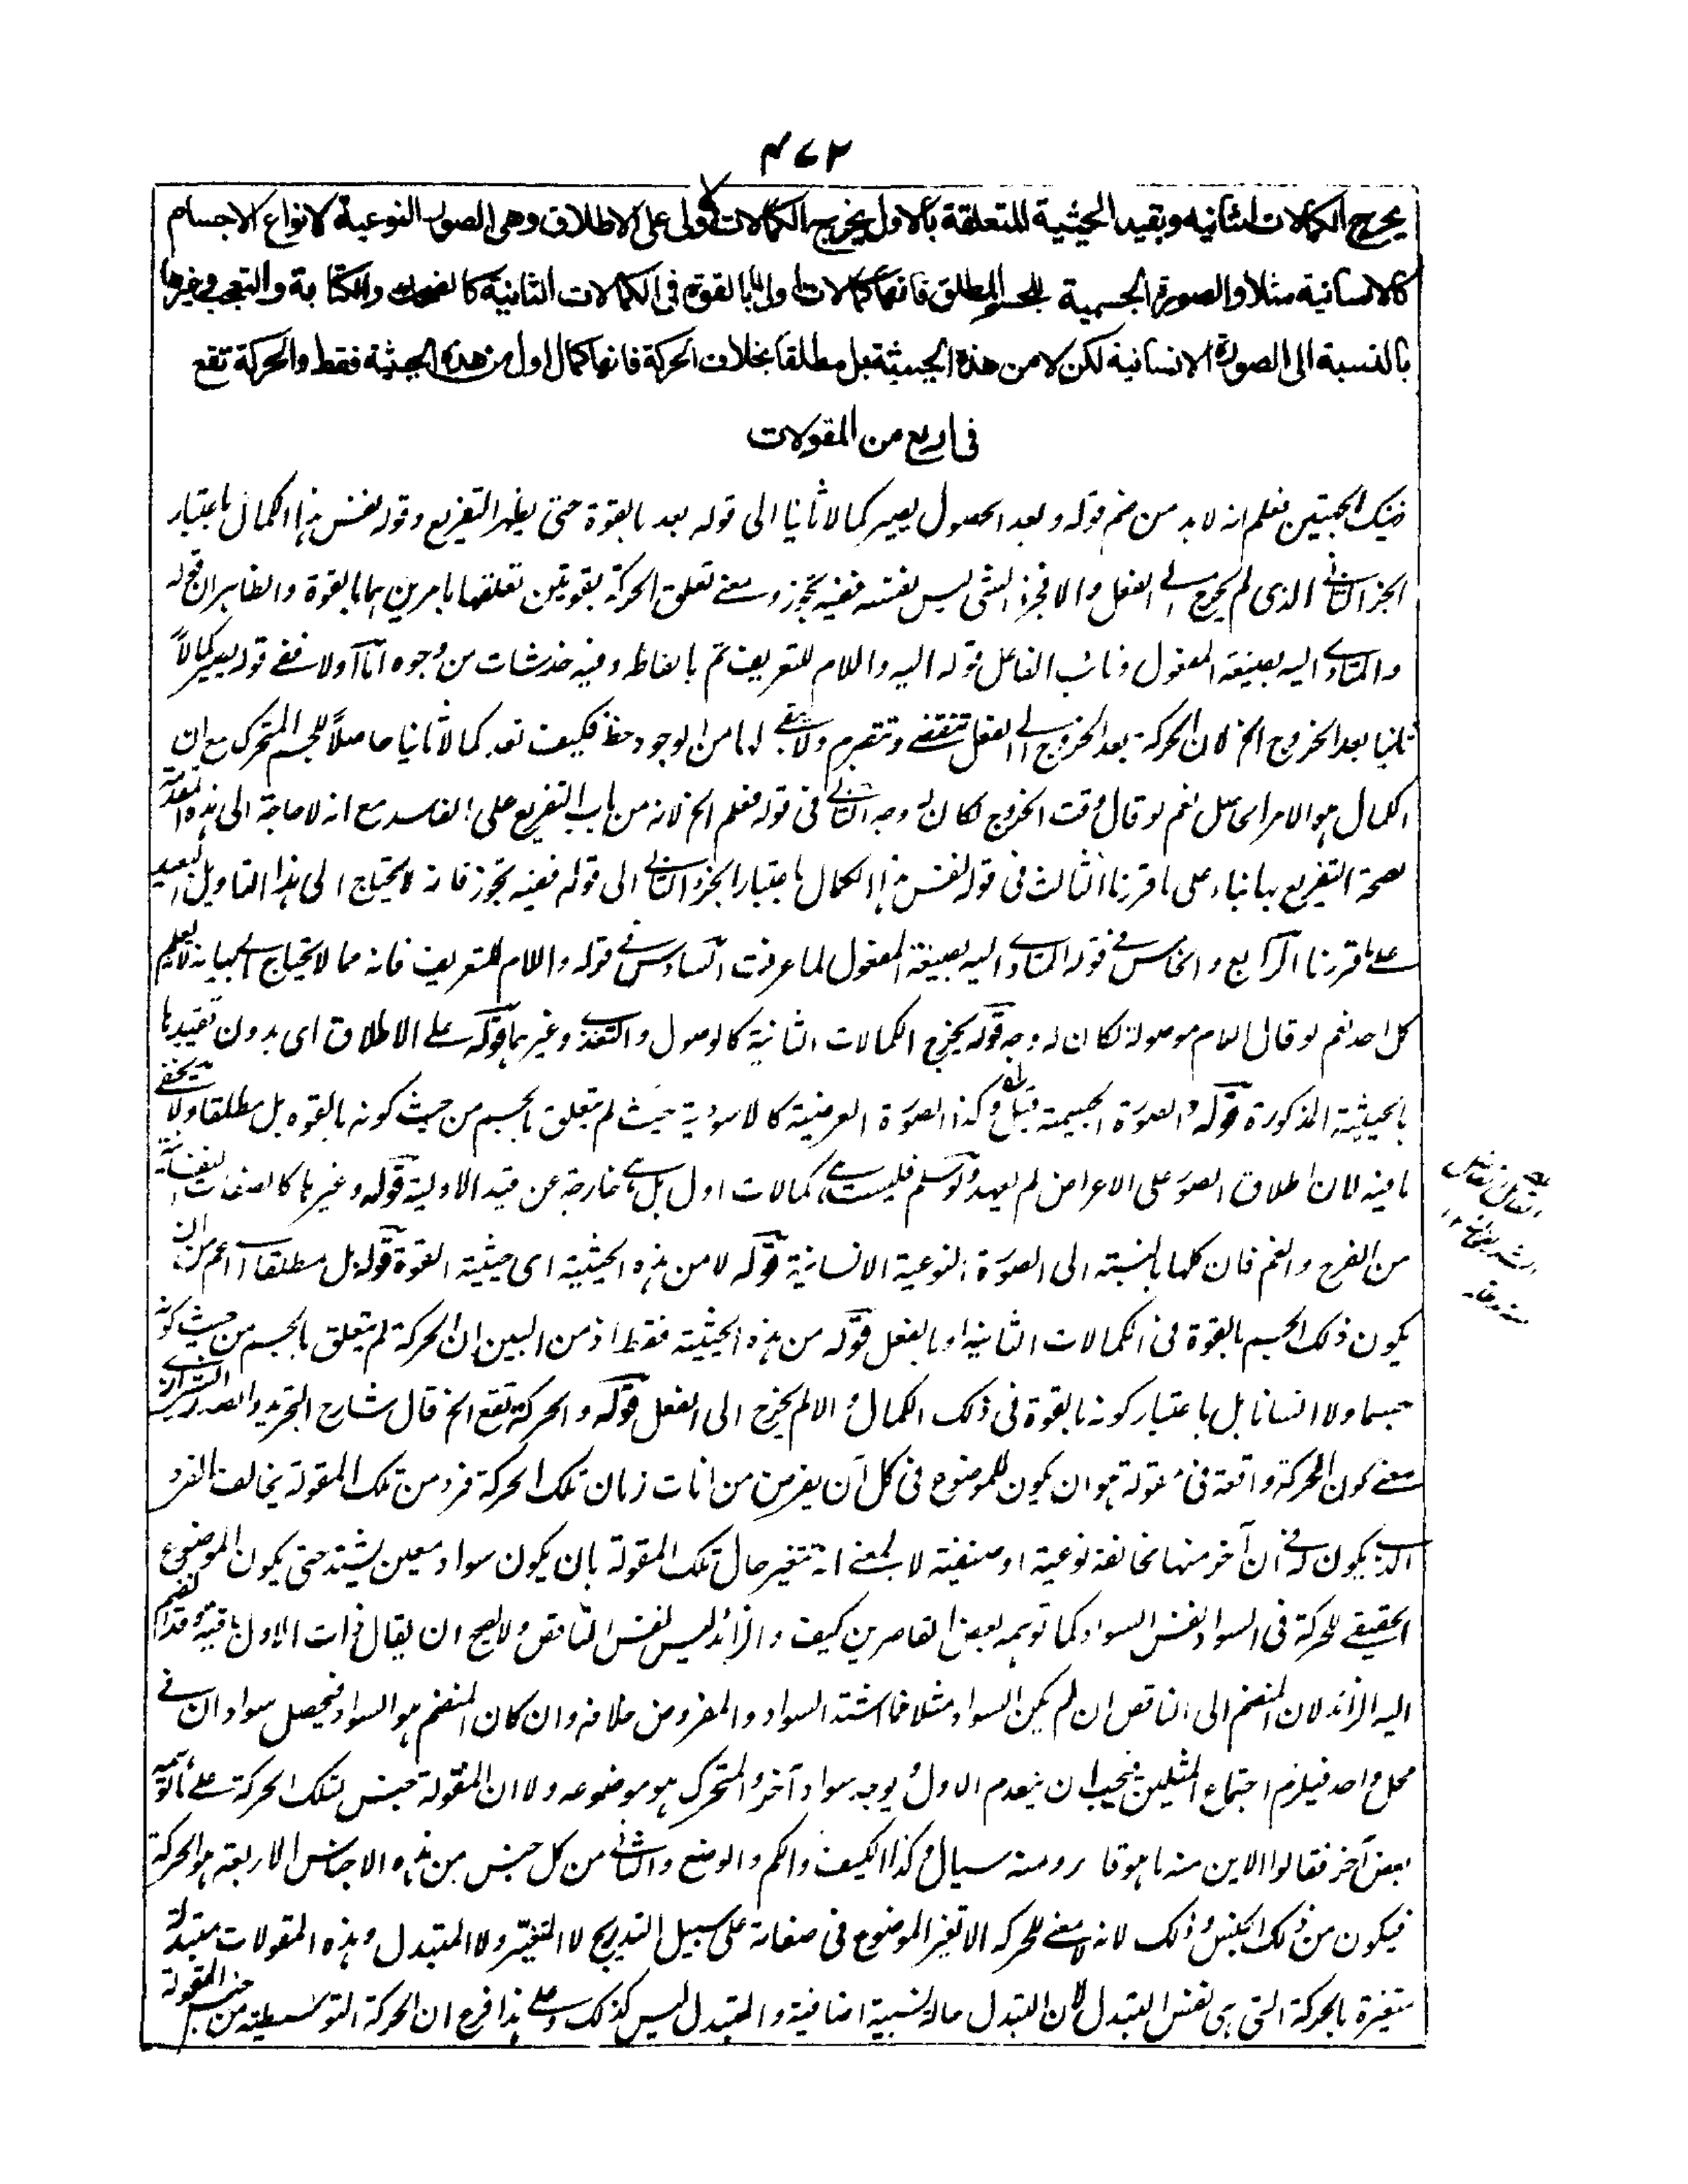 ٤٧٢
يخرج الكمالات الثانيه وبقيد الحيثية المتعلقة بالاول يخرج الكمالات الاولى على الاطلاق وهى الصور النوعية لانواع الاجسام
كالانسانية مثلا والصورة الجسمية للجسم المطلق فانها كمالات اولى لما بالقوة فى الكمالات الثانية كالضحك والكتابة والتعجب وغيرها
بالنسبة الى الصورة الانسانية لكن لا من هذه الحيثية بل مطلقا بخلاف الحركة فانها كمال اول من هذه الحيثية فقط والحركة تقع
فى اربع من المقولات
الجهتين فعلم انه لابد من ضم قوله وبعد الحصول يصير كمالا ثانيا الى قوله بعد بالقوة حتى يظهر التفريع وقوله نفس هذا الكمال باعتبار
الجزء الثانى الذى لم يخرج الى الفعل والا فجزء الشى ليس نفسه ففيه تجوز ومعنى تعلق الحركة بقوتين تعلقها بامرين هما بالقوة والظاهر ان قوله
والمتادى اليه بصيغة المفعول ونائب الفاعل قوله اليه واللام للتعريف تم بالفاظه وفيه خدشات من وجوه اما اولا ففى قوله يصير كمالاً
ثانيا بعد الخروج الخ لان الحركة بعد الخروج الى الفعل تنقضى وتتصرم ولا يبقى لها من الوجود حظ فكيف تعد كمالا ثانيا حاصلاً للجسم المتحرك مع ان
الكمال هو الامر الحاصل نعم لو قال وقت الخروج لكان له وجه الثانى فى قوله فعلم الخ لانه من باب التفريع على الفاسد مع انه لا حاجة الى هذه المقدمة
لصحة التفريع بها بناء على ما قررنا الثالث فى قوله نفس هذا الكمال باعتبار الجزء الثانى الى قوله ففيه تجوز فانه لا يحتاج الى هذا التاويل البعيد
على ما قررنا الرابع والخامس فى قوله المتادى اليه بصيغة المفعول لما عرفت السادس فى قوله واللام للتعريف فانه مما لا يحتاج الى بيانه لعلم
كل احد نعم لو قال اللام موصولة لكان له وجه قوله يخرج الكمالات الثانية كالوصول والتعذى وغيرهما قوله على الاطلاق اى بدون تقييدها
بالحيثية المذكورة قوله والصورة الجسمية قيل وكذا الصورة العرضية كالاسودية حيث لم يتعلق بالجسم من حيث كونه بالقوه بل مطلقا ولا يخفى
ما فيه لان اطلاق الصور على الاعراض لم يعهد ولو سلم فليست هى كمالات اول بل هى خارجة عن قيد الاولية قوله وغيرها كالصفات النفسانية
من الفرح والغم فان كلها بالنسبة الى الصورة النوعية الانسانية قوله لا من هذه الحيثية اى حيثية القوة قوله بل مطلقا اعم من ان
يكون ذلك الجسم بالقوة فى الكمالات الثانية او بالفعل قوله من هذه الحيثية فقط اذ من البين ان الحركة لم يتعلق بالجسم من حيث كونه
جسما ولا انسانا بل باعتبار كونه بالقوة فى ذلك الكمال والا لم يخرج الى الفعل قوله والحركة تقع الخ قال شارح التجريد والصدر الشيرازى
معنى كون الحركة واقعة فى مقولة هو ان يكون للموضوع فى كل آن يفرض من انات زمان تلك الحركة فرد من تلك المقولة يخالف الفرد
الذى يكون له فى آن آخر منها مخالفة نوعية او صنفية لا بمعنى انه تتغير حال تلك المقولة بان يكون سواد معين يشتد حتى يكون الموضوع
الحقيقى للحركة فى السواد نفس السواد كما توهمه بعض القاصرين كيف والزائد ليس نفس الناقص ولا يصح ان يقال ذات الاول باقية وقد انضم
اليه الزائد لان المنضم الى الناقص ان لم يكن السواد مثلا فما اشتد السواد والمفروض خلافه وان كان المنضم هو السواد فيحصل سوادان فى
محل واحد فيلزم اجتماع المثلين فيجب ان ينعدم الاول ويوجد سواد آخر والمتحرك هو موضوعه ولا ان المقولة جنس لتلك الحركة على ما توهمه
بعض آخر فقالوا الاين منه ما هو قار ومنه سيال وكذا الكيف والكم والوضع والثانى من كل جنس من هذه الاجناس الاربعة هو الحركة
فيكون من ذلك الجنس وذلك لانه لا معنى للحركة الا تغير الموضوع فى صفاته على سبيل التدريج لا المتغير ولا المتبدل وهذه المقولات متبدلة
متغيرة بالحركة التى هى نفس التبدل لان التبدل حالة نسبية اضافية والمتبدل ليس كذلك وعلى هذا فرع ان الحركة التوسطية من جنس المقولة